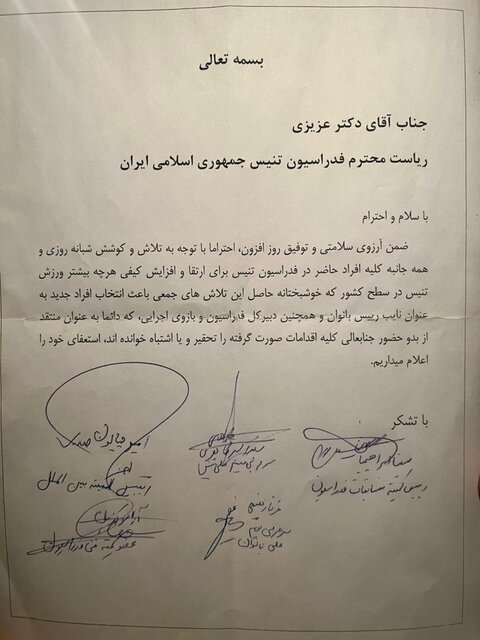 بسمه تعالی
جناب آقای دکتر عزیزی
ریاست محترم فدراسیون تنیس جمهوری اسلامی ایران
با سلام و احترام
ضمن آرزوی سلامتی و توفیق روز افزون، احتراما با توجه به تلاش و کوشش شبانه روزی و
همه جانبه کلیه افراد حاضر در فدراسیون تنیس برای ارتقا و افزایش کیفی هرچه بیشتر ورزش
تنیس در سطح کشور که خوشبختانه حاصل این تلاش های جمعی باعث انتخاب افراد جدید به
عنوان نایب رییس بانوان و همچنین دبیرکل فدراسیون و بازوی اجرایی، که دائما به عنوان منتقد
از بدو حضور جنابعالی کلیه اقدامات صورت گرفته را تحقیر و یا اشتباه خوانده اند، استعفای خود را
اعلام میداریم.
با تشکر
رییس کمیته مسابقات فدراسیون
سرمربی تیم ملی تنیس
رییس کمیته بین الملل
سرمربی تیم
ملی بانوان
عضو کمیته فنی فدراسیون